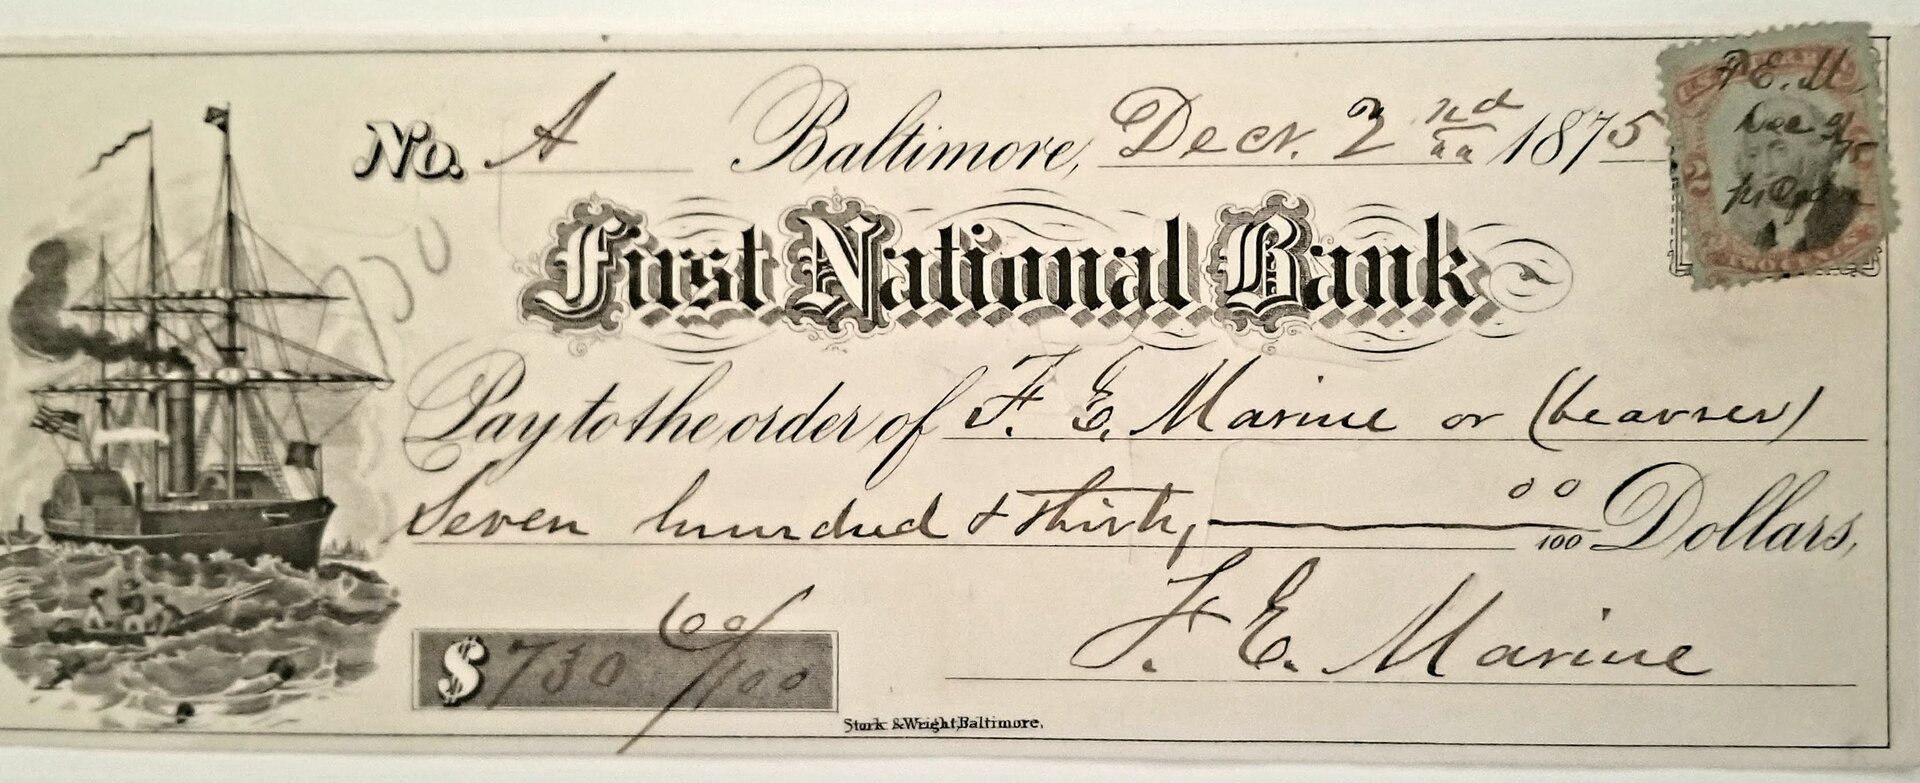 No. A Baltimore, Decr. 2nd 1875
First National Bank
Pay to the order of F. E. Marine or (bearer)
Seven hundred & thirty, 00/100 Dollars,
$ 730 00/100
F. E. Marine
Stork & Wright, Baltimore.
F. E. M.
Dec 2/75
2
TWO CENTS